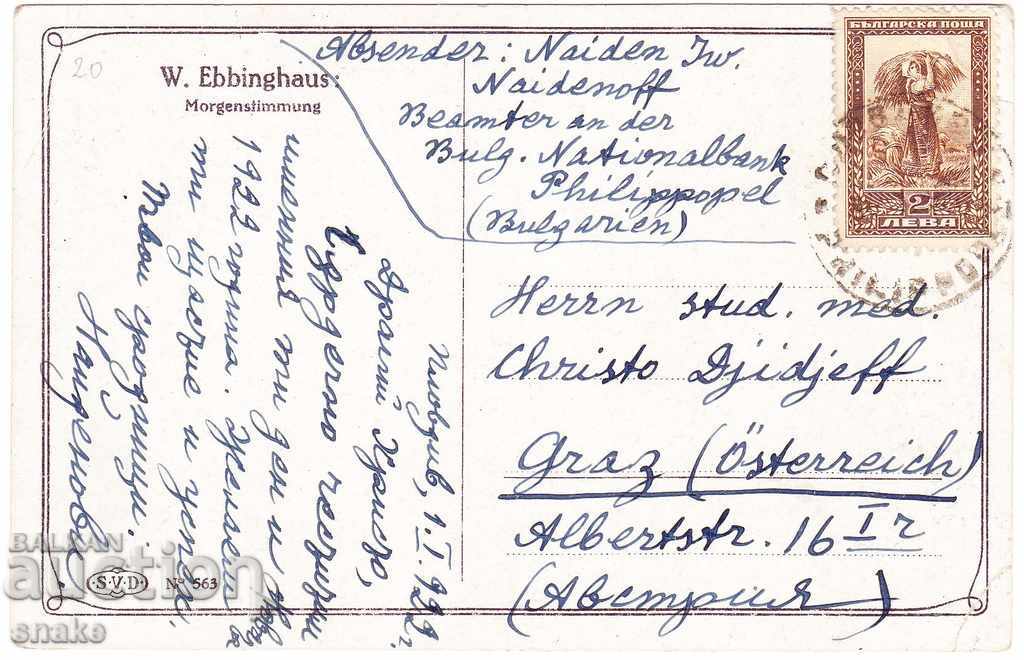 20
W. Ebbinghaus:
Morgenstimmung
Absender: Naiden Iw.
Naidenoff
Beamter an der
Bulg. Nationalbank
Philippopel
(Bulgarien)
БЪЛГАРСКА ПОЩА
2
ЛЕВА
Herrn stud. med.
Christo Djidjeff
Graz (Österreich)
Albertstr. 16 I r
(Австрия)
Пловдив, 1.I.922 г.
Драгий Христо,
Сърдечно честитим
именния ти ден и новата
1922 година. Желаем
ти щастие и успех.
Твои сродници:
Найденови
S.V.D.
No 563
BALKAN
auction
snake